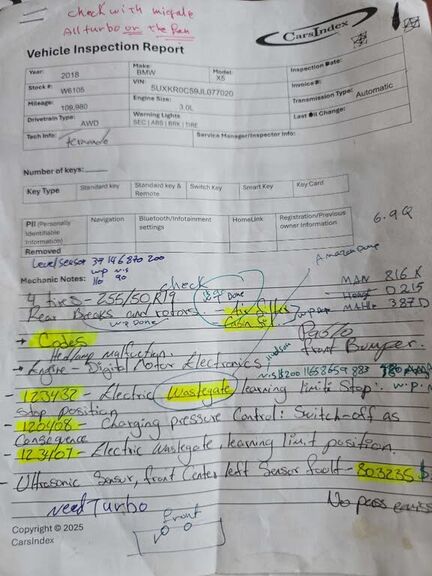 check with migale
All turbo or the fan
CarsIndex
Vehicle Inspection Report
Year: 2018 Make: BMW Model: X5 Inspection Date:
Stock #: W6105 VIN: 5UXKR0C59JL077020 Invoice #:
Mileage: 109,980 Engine Size: 3.0L Transmission Type: Automatic
Drivetrain Type: AWD Warning Lights SEC | ABS | BRK | TIRE Last Oil Change:
Tech Info: Service Manager/Inspector Info:
Number of keys:
Key Type Standard key Standard key & Remote Switch Key Smart Key Key Card
PII (Personally Identifiable Information) Navigation Bluetooth/Infotainment settings HomeLink Registration/Previous owner Information
6.9Q
Removed
Level sensor 37 14 6 870 200
Amazon Done
Mechanic Notes: w.p 110 n.s 90
check
4 tires - 255/50 R19 Done
MAN 816 K
0215
Rear Breaks and rotors - Air filter
MAHLE 387D
w.p Done Cabin
→ Codes
Headlamp malfuction. front Bumper.
→ Engine - Digital Motor Electronics
- 123432 - Electric Wastegate, learning limit: Stop. w.p.
Stop position
- 120408 - Charging pressure Control: Switch-off as
Consequence
- 123407 - Electric wastegate, learning limit position.
- Ultrasonic Sensor, front Center left Sensor fault - 803235
need Turbo
No pass
front
Copyright © 2025
CarsIndex